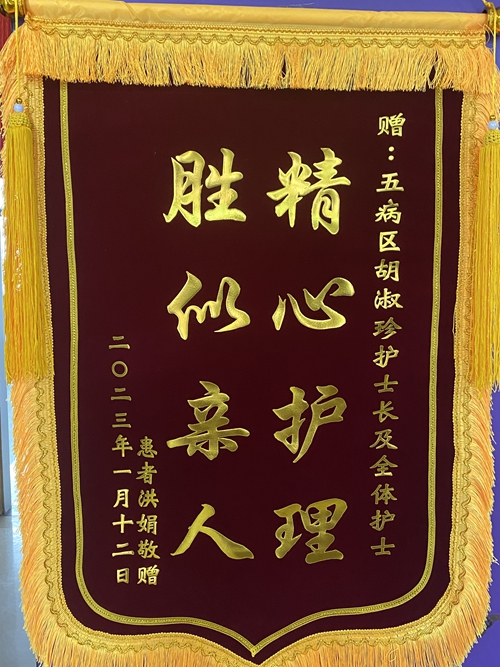 赠：五病区胡淑珍护士长及全体护士
精心护理
胜似亲人
患者洪娟敬赠
二〇二三年一月十二日